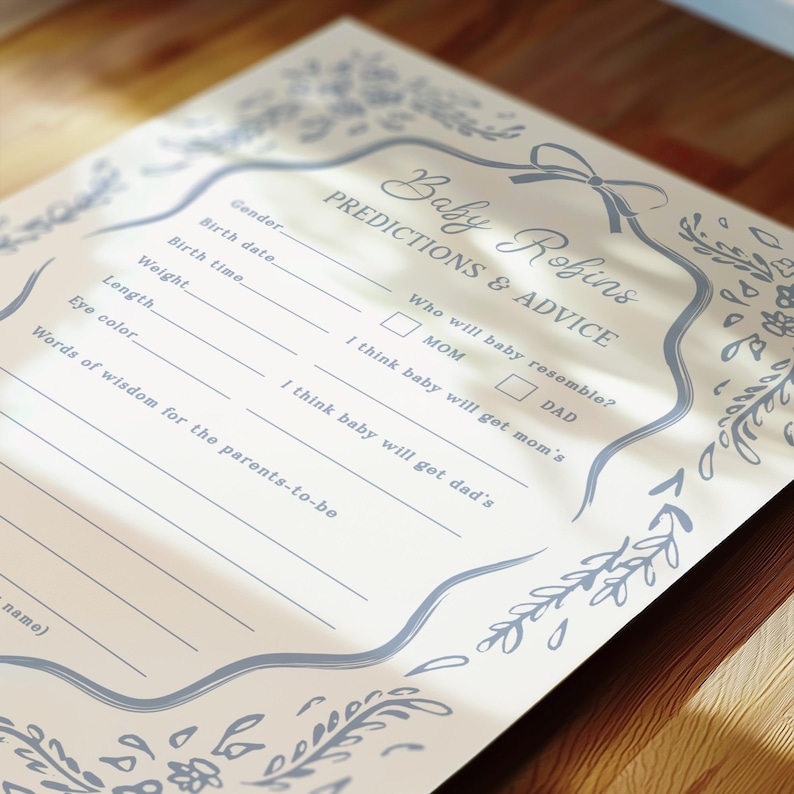 Baby Robins
PREDICTIONS & ADVICE
Gender
Birth date
Birth time
Weight
Length
Eye color
Who will baby resemble?
MOM
DAD
I think baby will get mom's
I think baby will get dad's
Words of wisdom for the parents-to-be
name)